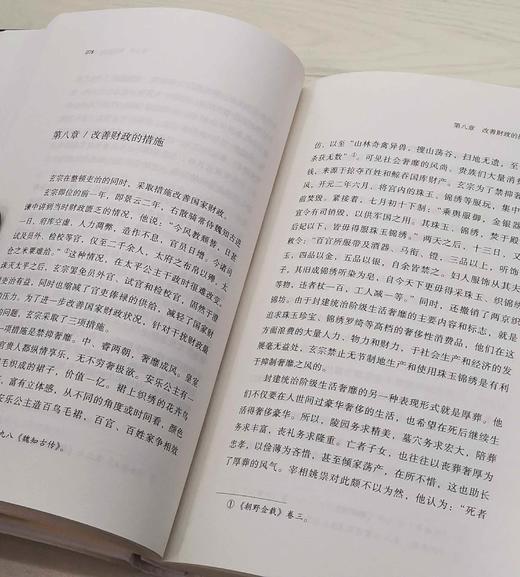 第八章 / 改善财政的措施
玄宗在整顿吏治的同时，采取措施改善国家财政。
玄宗即位的前一年，即景云二年，右散骑常侍魏知古进
谏中讲到当时财政匮乏的情况，他说：“今风教颓替，日甚
一日，府库空虚，人力凋弊，造作不息，官员日增，今诸司
试及员外、检校等官，仅至二千余人，太府之布帛以殚，太
仓之米粟难给。”这种情况，在太平公主干政时很难改变。
诛灭太平之后，玄宗罢免员外官、试官和检校官，固然于澄
清吏治有益，同时也缩减了官吏俸禄的供给，减轻了国家财
政压力。为了进一步改善国家财政状况，针对干扰财政最
的问题，玄宗采取了三项措施。
一项措施是禁抑奢靡。中、睿两朝，奢靡成风。皇室
官贵人都纵情享乐，无不穷奢极欲。安乐公主有一
毛织成的裙子，价值一亿。裙上织绣的花卉鸟
，富有立体感，从不同的角度或时间看，颜色
安乐公主造百鸟毛裙，百官、百姓家争相效
九八《魏知古传》。
第八章 改善财政的
仿，以至“山林奇禽异兽，搜山荡谷，扫地无遗，至
杀获无数”①。可见社会奢靡的风尚。贵族们大量消费
钱，来源于掠夺百姓和鲸吞国库财产。玄宗为了禁抑
风，开元二年六月，将宫内的珠玉、锦绣等服玩，集中
前焚毁。紧接着，七月初十下制：“乘舆服御，金银器
宜令有司销毁，以供军国之用。其珠玉、锦绣，焚于殿
妃以下，皆毋得服珠玉锦绣。”两天之后，十三日，又
敕令：“百官所服带及酒器、马衔、镫，三品以上，听饰
四品以金，五品以银，自余皆禁之。妇人服饰从其夫
其旧成锦绣听染为皂，自今天下更毋得采珠玉、织锦绣
物，违者杖一百，工人减一等。”同时，还撤销了两京织
锦坊。由于封建统治阶级生活奢靡的主要内容和标志，就是
追求珠玉珍宝、锦绣罗绮等高档的奢侈性消费品，他们在这
方面浪费的大量人力、物力和财力，于社会生产和经济的发
展毫无益处，玄宗禁止无节制地生产和使用珠玉锦绣是有利
于抑制奢靡之风的。
封建统治阶级生活奢靡的另一种表现形式就是厚葬。他
们不仅要在人世间过豪华奢侈的生活，也希望在死后继续生
活得奢侈豪华。所以，陵园务求精美，墓穴务求宏大，陪葬
务求丰富，丧礼务求隆重。亡者子女，也往往以丧葬奢厚为
忠孝，以俭薄为吝惜，甚至倾家荡产，在所不惜，这也助长
了厚葬的风气。宰相姚崇对此颇不以为然，他认为：“死者
①《朝野佥载》卷三。